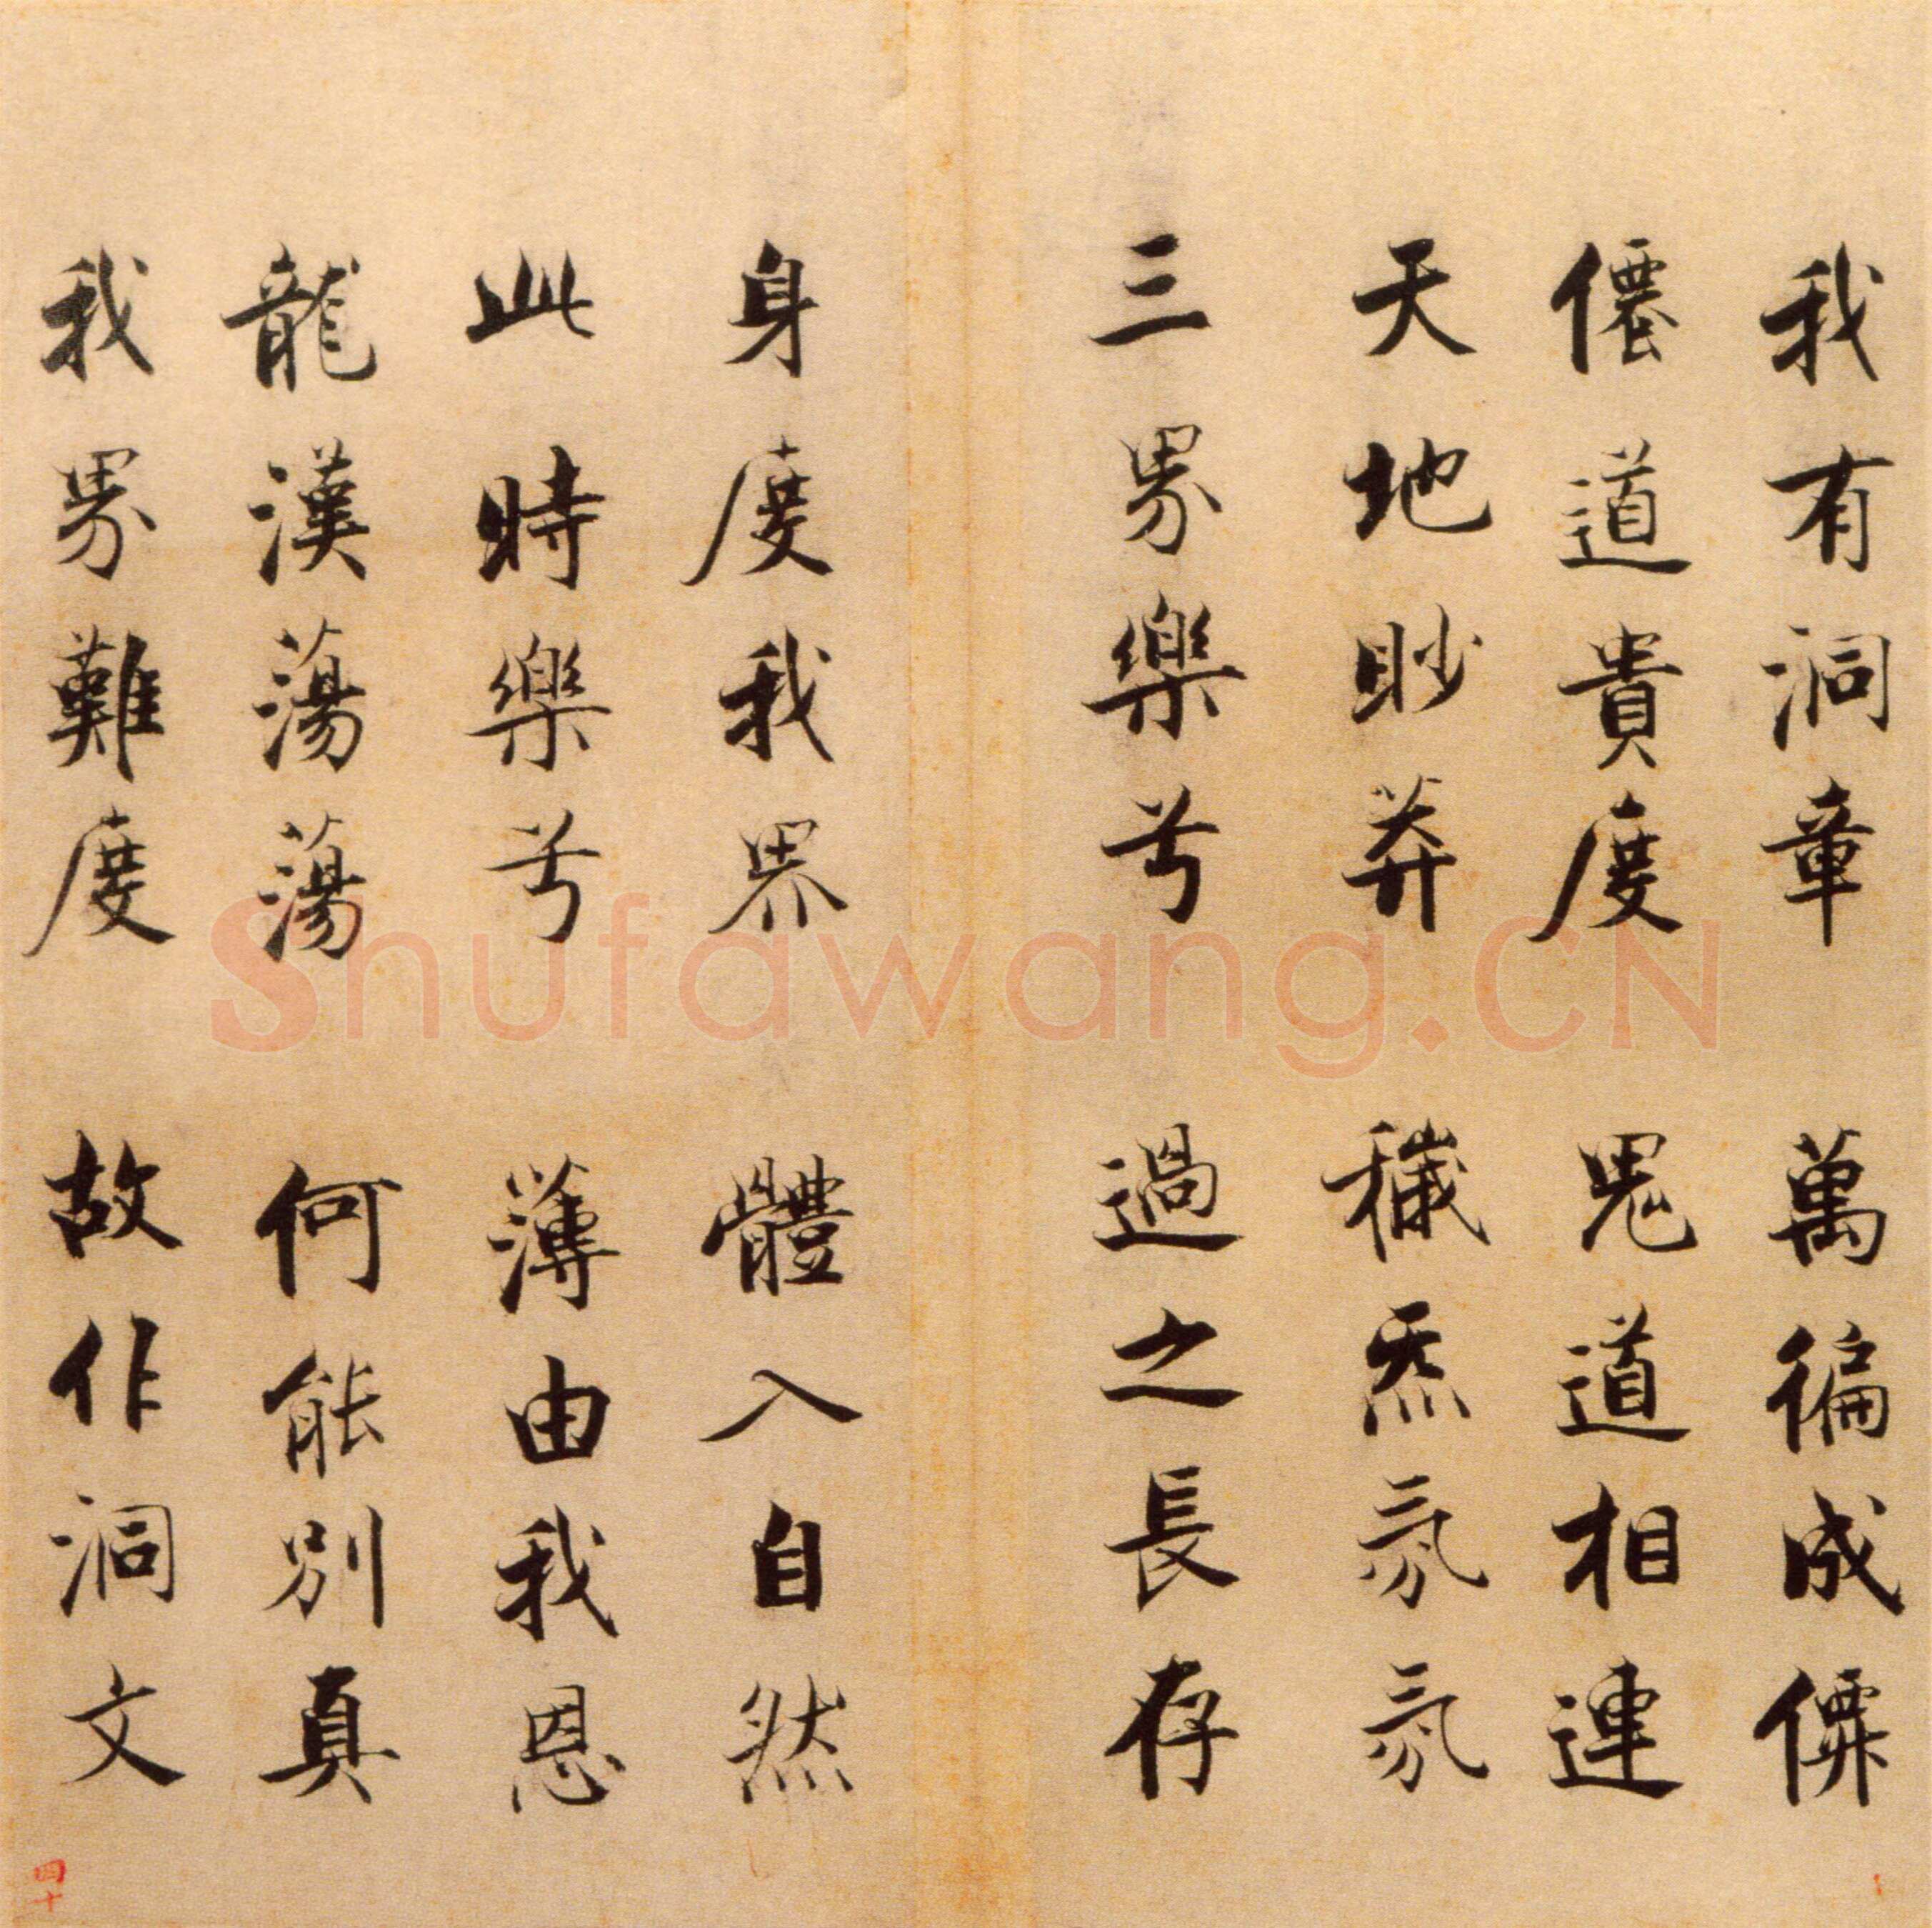 我有洞章 萬徧成僊
僊道貴度 鬼道相連
天地眇莽 穢炁氛氛
三界樂兮 過之長存
身度我界 體入自然
此時樂兮 薄由我恩
龍漢蕩蕩 何能別真
我界難度 故作洞文
四十
Shufawang.CN